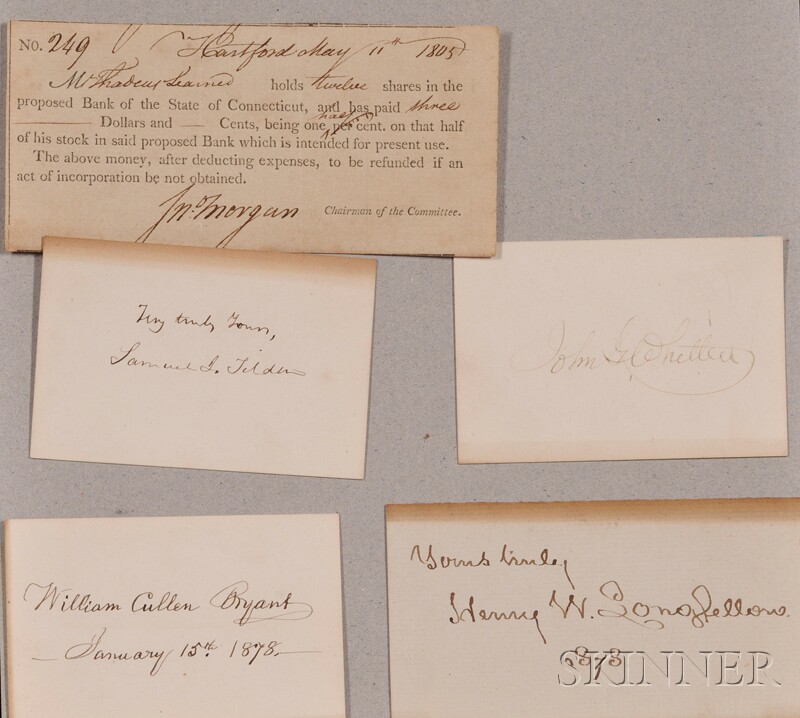 NO. 249 Hartford May 11th 1805
Mr Thadeus Learned holds twelve shares in the
proposed Bank of the State of Connecticut, and has paid three
Dollars and Cents, being one half per cent. on that half
of his stock in said proposed Bank which is intended for present use.
The above money, after deducting expenses, to be refunded if an
act of incorporation be not obtained.
Jno. Morgan Chairman of the Committee.
Very truly Yours,
Samuel J. Tilden
John G. Whittier
William Cullen Bryant
January 15th. 1878.
Yours truly
Henry W. Longfellow.
1873
SKINNER